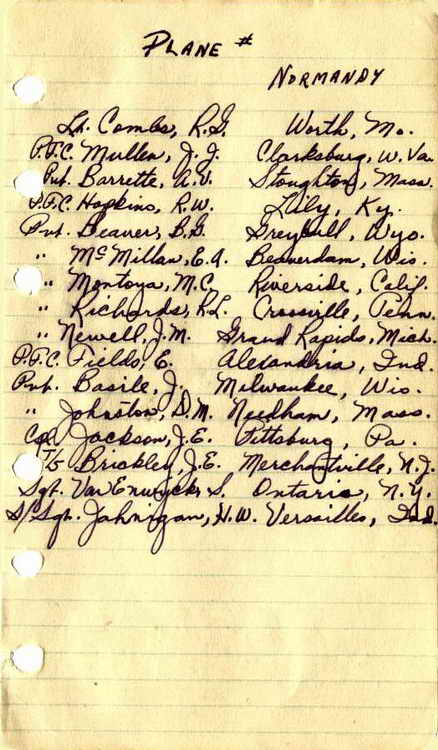 PLANE #
NORMANDY
Lt. Combs, R.G. Worth, Mo.
P.F.C. Mullen, J.J. Clarksburg, W. Va.
Pvt. Barrette, A.V. Stoughton, Mass.
P.F.C. Hopkins, R.W. Lily, Ky.
Pvt. Beaver, B.G. Greybull, Wyo.
" McMillan, E.A. Beaverdam, Wis.
" Montoya, M.C. Riverside, Calif.
" Richards, R.L. Crossville, Penn.
" Newell, J.M. Grand Rapids, Mich.
P.F.C. Fields, E. Alexandria, Ind.
Pvt. Basile, J. Milwaukee, Wis.
" Johnston, D.M. Needham, Mass.
Cpl Jackson, J.E. Pittsburg, Pa.
T/5 Brickley, J.E. Merchantville, N.J.
Sgt. S. Ontario, N.Y.
S/Sgt. Jahnigan, H.W. Versailles, Ind.